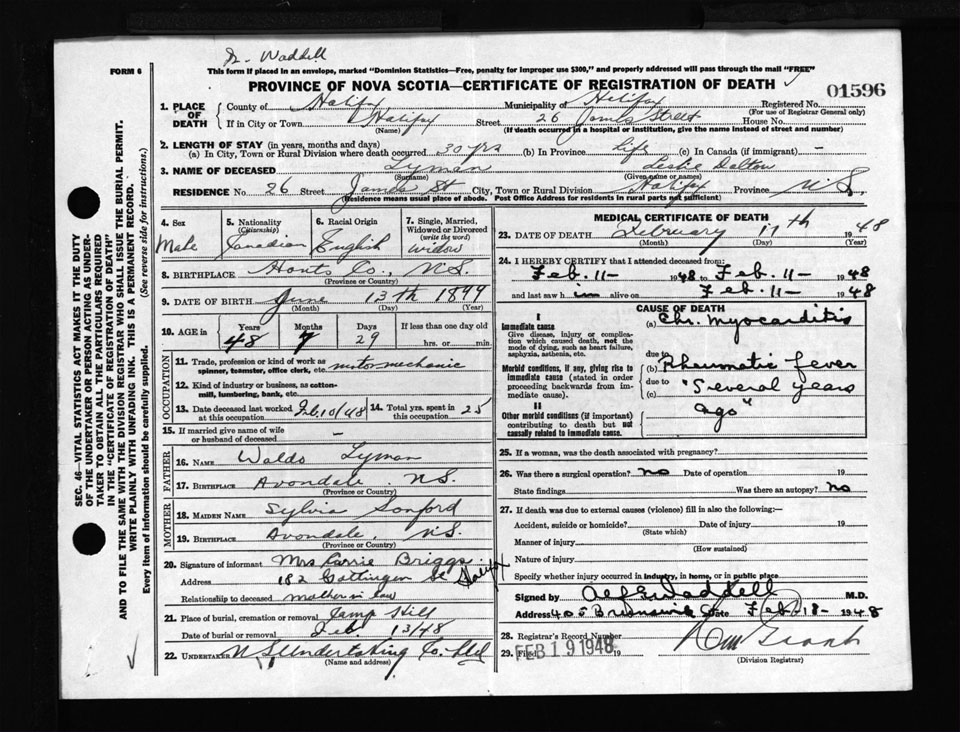 Dr. Waddell
FORM 6
This form if placed in an envelope, marked "Dominion Statistics—Free, penalty for improper use $300," and properly addressed will pass through the mail "FREE"
PROVINCE OF NOVA SCOTIA—CERTIFICATE OF REGISTRATION OF DEATH
01596
1. PLACE OF DEATH
County of Halifax Municipality of Halifax Registered No.
(For use of Registrar General only)
If in City or Town Halifax Street 26 James Street House No.
(Name) (If death occurred in a hospital or institution, give the name instead of street and number)
2. LENGTH OF STAY (in years, months and days)
(a) In City, Town or Rural Division where death occurred 30 yrs (b) In Province life (c) In Canada (if immigrant) —
3. NAME OF DECEASED Lyman Leslie Dalton
(Surname) (Given name or names)
RESIDENCE No. 26 Street James St City, Town or Rural Division Halifax Province N.S.
(Residence means usual place of abode. Post Office Address for residents in rural parts not sufficient)
4. Sex
Male
5. Nationality
(Citizenship)
Canadian
6. Racial Origin
English
7. Single, Married, Widowed or Divorced
(write the word)
widow
8. BIRTHPLACE Hants Co., N.S.
(Province or Country)
9. DATE OF BIRTH June 13th 1899
(Month) (Day) (Year)
10. AGE in
Years Months Days If less than one day old
48 7 29 hrs. or min.
OCCUPATION
11. Trade, profession or kind of work as spinner, teamster, office clerk, etc. motor mechanic
12. Kind of industry or business, as cotton-mill, lumbering, bank, etc.
13. Date deceased last worked at this occupation Feb 10/48
14. Total yrs. spent in this occupation 25
15. If married give name of wife or husband of deceased —
FATHER
16. NAME Waldo Lyman
17. BIRTHPLACE Avondale N.S.
(Province or Country)
MOTHER
18. MAIDEN NAME Sylvia Sanford
19. BIRTHPLACE Avondale, N.S.
(Province or Country)
20. Signature of informant Mrs Carrie Briggs
Address 182 Gottingen St Halifax
Relationship to deceased mother in law
21. Place of burial, cremation or removal Camp Hill
Date of burial or removal Feb. 13/48
22. UNDERTAKER N S Undertaking Co. Ltd
(Name and address)
MEDICAL CERTIFICATE OF DEATH
23. DATE OF DEATH February 11th 1948
(Month) (Day) (Year)
24. I HEREBY CERTIFY that I attended deceased from:
Feb. 11- 1948 to Feb. 11- 1948
and last saw him alive on Feb. 11- 1948
CAUSE OF DEATH
I
Immediate cause
Give disease, injury or complication which caused death, not the mode of dying, such as heart failure, asphyxia, asthenia, etc.
(a) Chr. Myocarditis
due to
Morbid conditions, if any, giving rise to immediate cause (stated in order proceeding backwards from immediate cause).
(b) Rheumatic fever
due to
(c) "Several years ago"
II
Other morbid conditions (if important) contributing to death but not causally related to immediate cause.
25. If a woman, was the death associated with pregnancy?
26. Was there a surgical operation? no Date of operation 19
State findings Was there an autopsy? no
27. If death was due to external causes (violence) fill in also the following:
Accident, suicide or homicide? Date of injury 19
(State which)
Manner of injury
(How sustained)
Nature of injury
Specify whether injury occurred in industry, in home, or in public place
Signed by Waddell M.D.
Address 405 Brunswick St Date Feb. 18- 1948
28. Registrar's Record Number
29. Filed FEB 19 1948 19
(Division Registrar)
SEC. 46—VITAL STATISTICS ACT MAKES IT THE DUTY OF THE UNDERTAKER OR PERSON ACTING AS UNDERTAKER TO OBTAIN ALL THE PARTICULARS REQUIRED IN THE "CERTIFICATE OF REGISTRATION OF DEATH" AND TO FILE THE SAME WITH THE DIVISION REGISTRAR WHO SHALL ISSUE THE BURIAL PERMIT.
WRITE PLAINLY WITH UNFADING INK. THIS IS A PERMANENT RECORD.
Every item of information should be carefully supplied. (See reverse side for instructions.)